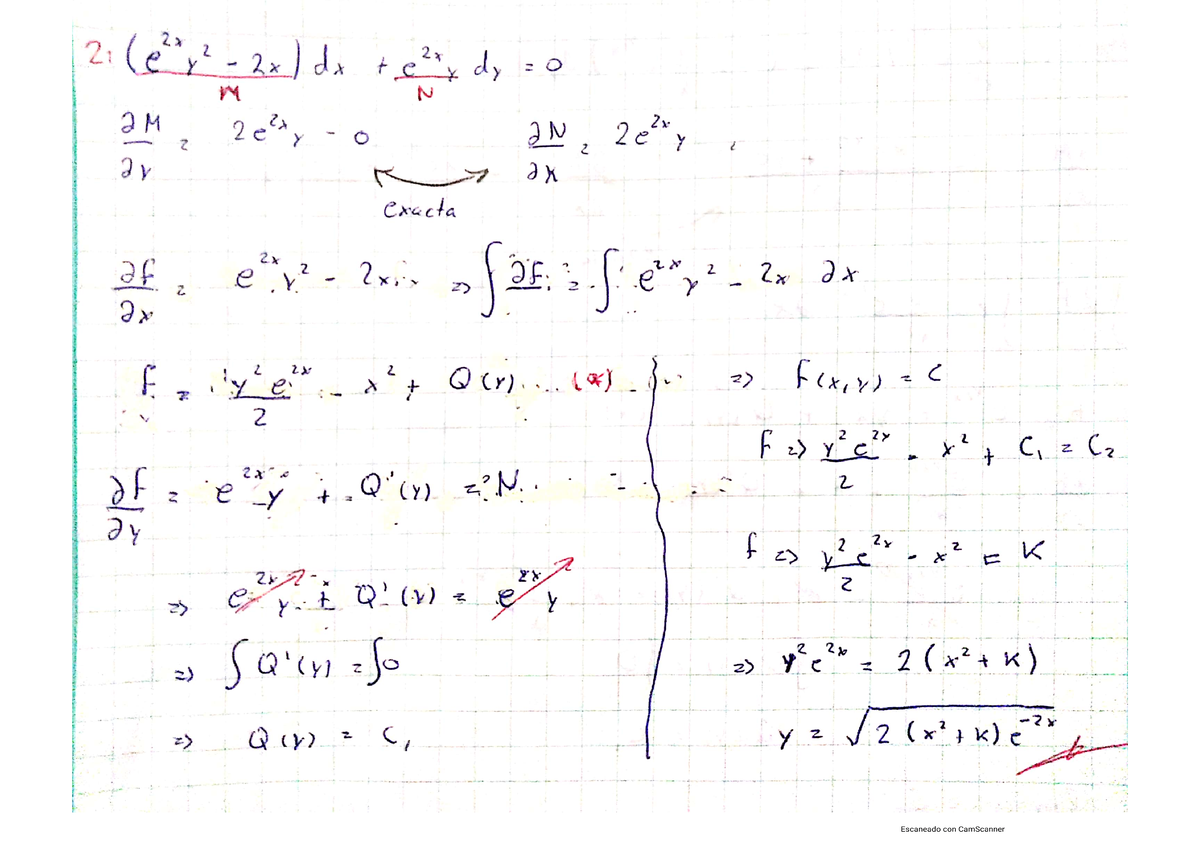 2: (e^{2x} y^2 - 2x) dx + e^{2x} y dy = 0
M N
∂M/∂y = 2e^{2x} y - 0 ∂N/∂x = 2e^{2x} y
exacta
∂f/∂x = e^{2x} y^2 - 2x => ∫∂f = ∫ e^{2x} y^2 - 2x ∂x
f = y^2 e^{2x}/2 - x^2 + Q(y) .... (*)
∂f/∂y = e^{2x} y + Q'(y) =? N
=> e^{2x} y + Q'(y) = e^{2x} y
=> ∫Q'(y) = ∫0
=> Q(y) = C_1
=> f(x,y) = C
f => y^2 e^{2x}/2 - x^2 + C_1 = C_2
f => y^2 e^{2x}/2 - x^2 = K
=> y^2 e^{2x} = 2(x^2 + K)
y = √(2(x^2 + K) e^{-2x})
Escaneado con CamScanner